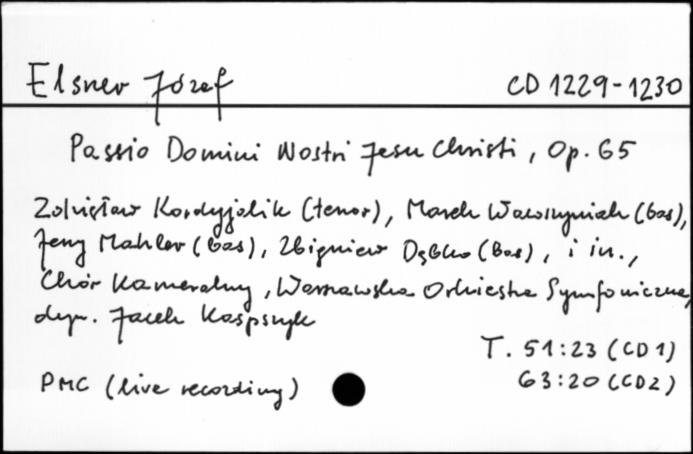 Elsner Józef CD 1229-1230
Passio Domini Nostri Jesu Christi, Op. 65
Zdzisław Kordyjalik (tenor), Marek Wawrzyniak (bas),
Jerzy Mahler (bas), Zbigniew Dębko (bas), i in.,
Chór Kameralny, Warszawska Orkiestra Symfoniczna,
dyr. Jacek Kaspszyk
T. 51:23 (CD1)
PMC (live recording) 63:20 (CD2)